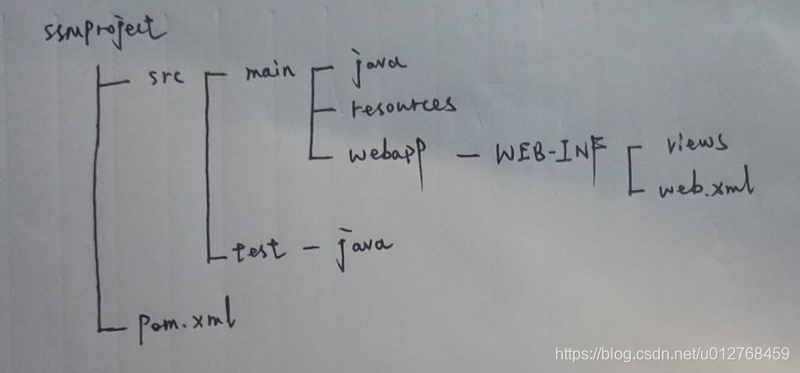 ssmproject
src main java
resources
webapp - WEB-INF views
web.xml
test - java
pom.xml
https://blog.csdn.net/u012768459